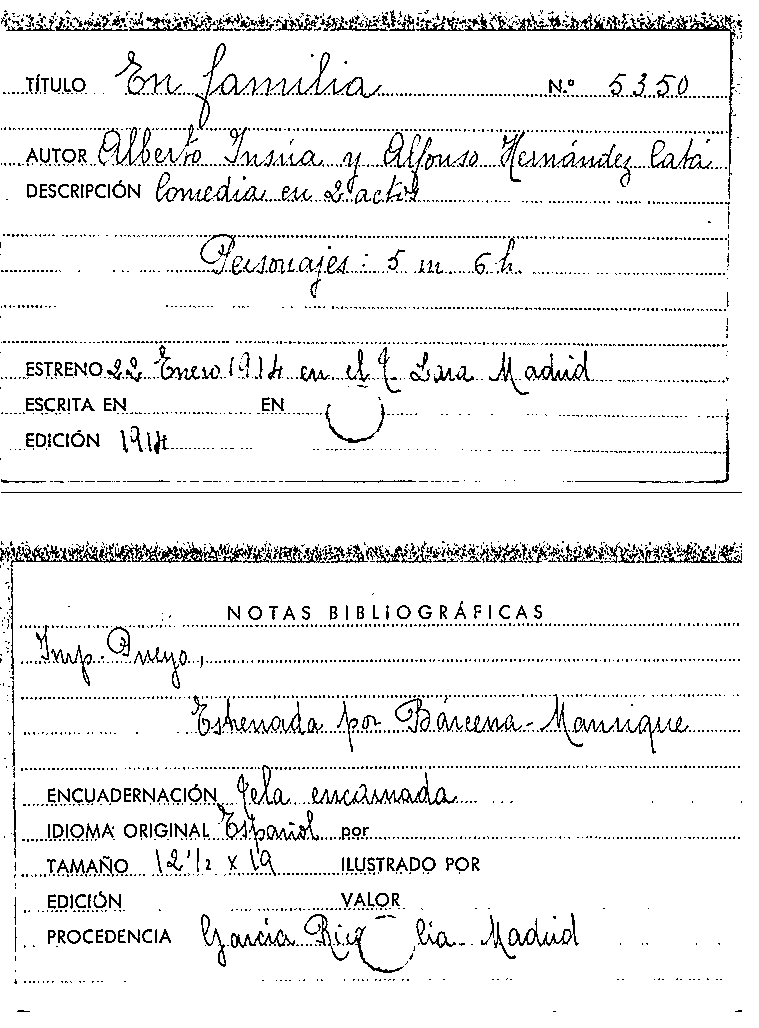 TÍTULO En familia N.º 5350
AUTOR Alberto Insúa y Alfonso Hernández Catá
DESCRIPCIÓN Comedia en 2 actos
Personajes: 5 m. 6 h.
ESTRENO 22 Enero 1914 en el T. Lara Madrid
ESCRITA EN EN
EDICIÓN 1914
NOTAS BIBLIOGRÁFICAS
Imp. Pueyo,
Estrenada por Bárcena - Manrique
ENCUADERNACIÓN Tela encarnada
IDIOMA ORIGINAL Español por
TAMAÑO 12 1/2 x 19 ILUSTRADO POR
EDICIÓN VALOR
PROCEDENCIA García Rico Madrid